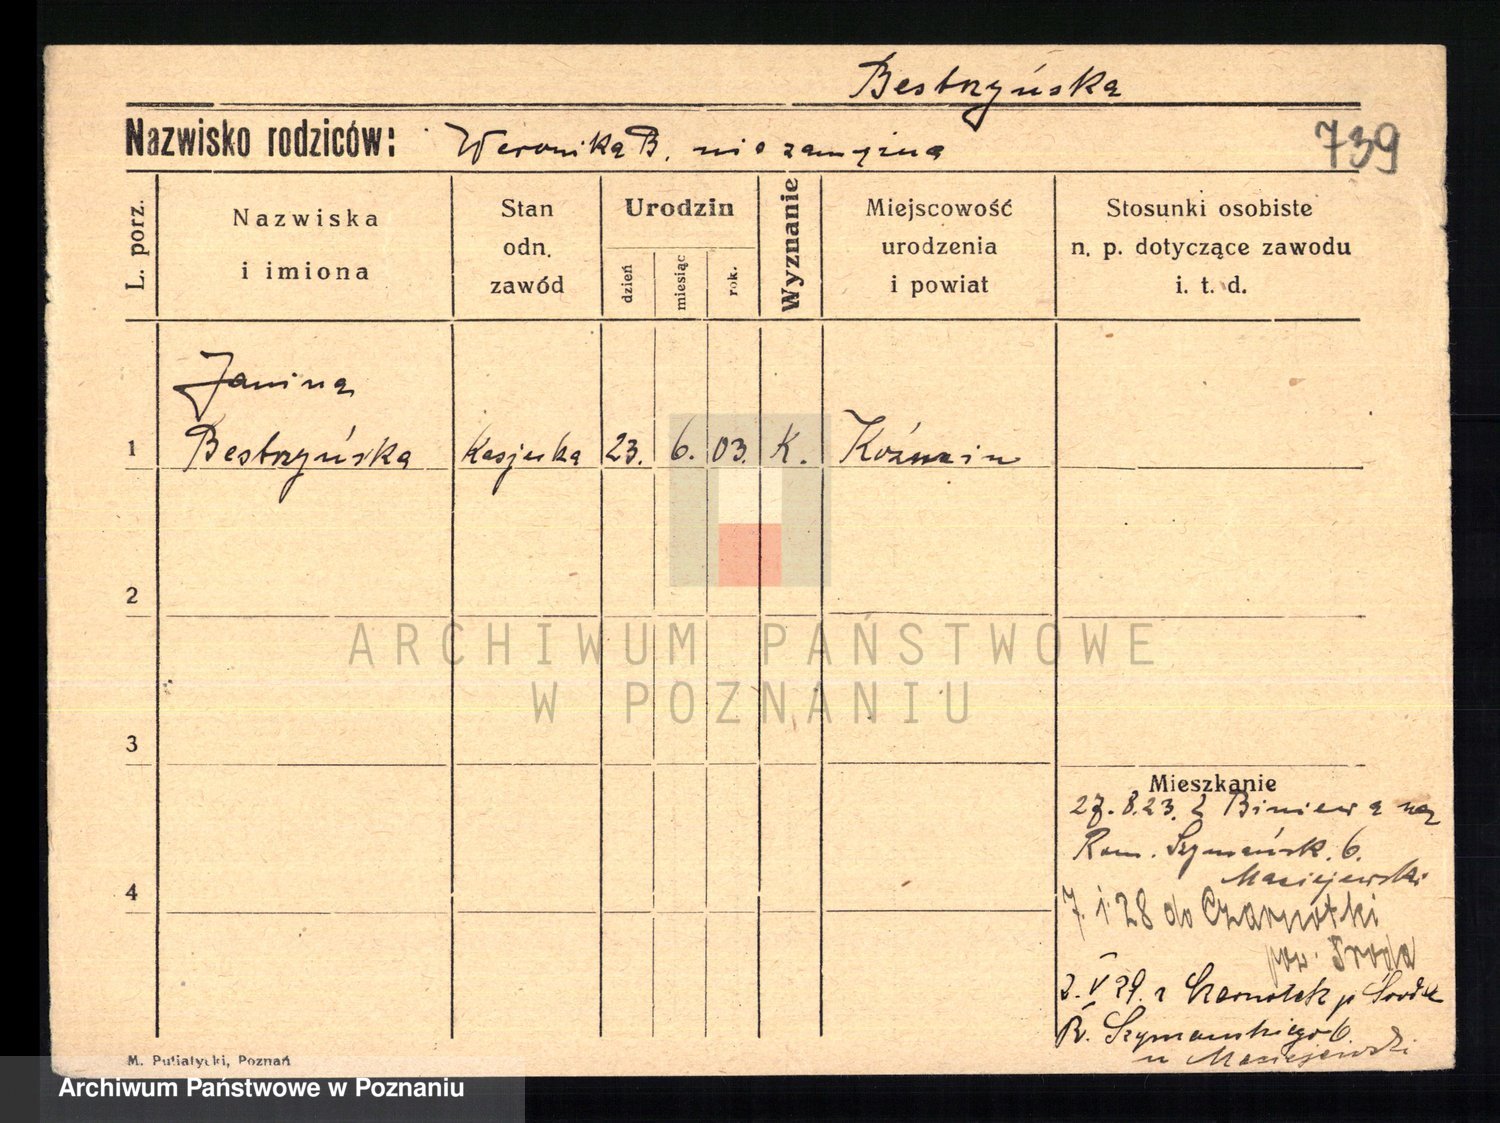 Bestrzyńska
Nazwisko rodziców: Weronika B. niezamężna
739
L. porz.
Nazwiska
i imiona
Stan
odn.
zawód
Urodzin
dzień
miesiąc
rok.
Wyznanie
Miejscowość
urodzenia
i powiat
Stosunki osobiste
n. p. dotyczące zawodu
i. t. d.
Janina
1 Bestrzyńska Kasjerka 23. 6. 03. K. Koźmin
2
ARCHIWUM PAŃSTWOWE
W POZNANIU
3
Mieszkanie
27.8.23. z Biniew
Rom. Szymańsk. 6.
Maciejewski
4
7. 1. 28 do Czarnotki
pow. Środa
2. V 29. z Czarnotek p Środa
R. Szymańskiego 6
u Maciejewski
M. Putiatycki, Poznań
Archiwum Państwowe w Poznaniu